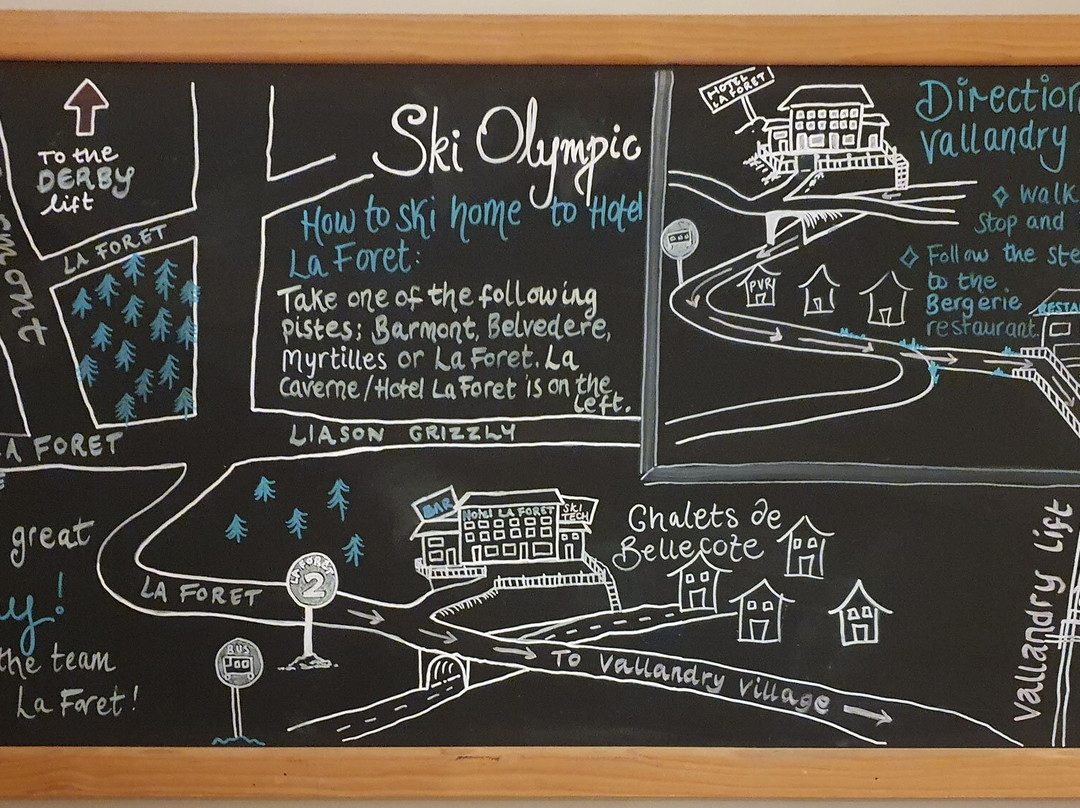 To the
DERBY
lift
LA FORET
LA FORET
great
the team
La Foret!
Ski Olympic
How to ski home to Hotel
La Foret:
Take one of the following
pistes; Barmont, Belvedere,
Myrtilles or La Foret. La
Caverne/Hotel La Foret is on the
left.
LIASON GRIZZLY
LA FORET
LA FORET
2
BUS
BAR
HOTEL LA FORET
SKI
TECH
Chalets de
Bellecote
To Vallandry Village
HOTEL
LA FORET
Direction
Vallandry
Walk
Stop and
Follow the ste
to the
Bergerie
restaurant.
PVR
RESTA
Vallandry Lift